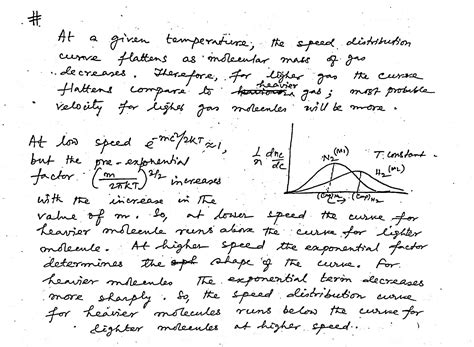 #
At a given temperature, the speed distribution
curve flattens as molecular mass of gas
decreases. Therefore, for lighter gas the curve
flattens compare to heavier gas; most probable
velocity for lighter gas molecules will be more.
At low speed e^{-mc²/2kT} ≈ 1,
but the pre-exponential
factor (m/2πkT)^{3/2} increases
with the increase in the
value of m. So, at lower speed the curve for
heavier molecule runs above the curve for lighter
molecule. At higher speed the exponential factor
determines the shape of the curve. For
heavier molecules the exponential term decreases
more sharply. So, the speed distribution curve
for heavier molecules runs below the curve for
lighter molecules at higher speed.
1/n dn_c/dc
N₂ (M1)
T constant.
H₂ (M2)
(Cmp)N₂
(Cmp)H₂